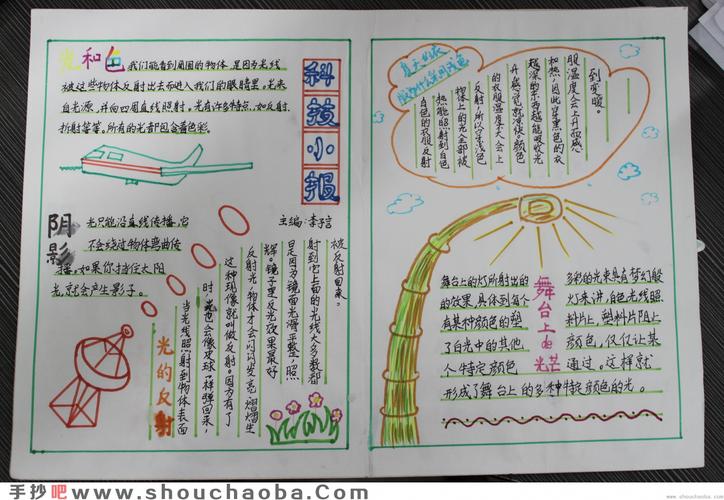 光和色
我们能看到周围的物体,是因为光线
被这些物体反射出去而进入我们的眼睛里。光来
自光源,并向四周直线照射。光有许多特点,如反射,
折射等等,所有的光都包含着色彩。
科技小报
主编:李子言
阴影
光只能沿直线传播,它
不会绕过物体弯曲传
播,如果你挡住太阳
光,就会产生影子。
光的反射
当光线照射到物体表面
时,光也会像皮球一样弹回来,
这种现象就叫做反射。因为有了
反射光,物体才会闪闪发亮,熠熠生
辉。镜子里反光效果最好
是因为镜面光滑平整,照
射到它上面的光线大多数都
被反射回来。
夏天的衣
服为什么多用浅色
白色的衣服反射
热能照射到白色
物体上的光全部被
反射,所以穿浅色
的衣服温度不大会上
升,感觉就凉快。颜色
越深的东西越能吸收光
和热,因此穿黑色的衣
服温度会上升,故感
到变暖。
舞台上的光芒
舞台上的灯所射出的
的效果,具体到每个
有某种颜色的塑
了白光中的其他
个特定颜色
多彩的光来具有梦幻般
灯来讲,白色光线照
料片上,塑料片阻止
颜色,仅仅让某
通过。这样就
形成了舞台上的多种特定颜色的光。
手抄吧 www.shouchaoba.Com